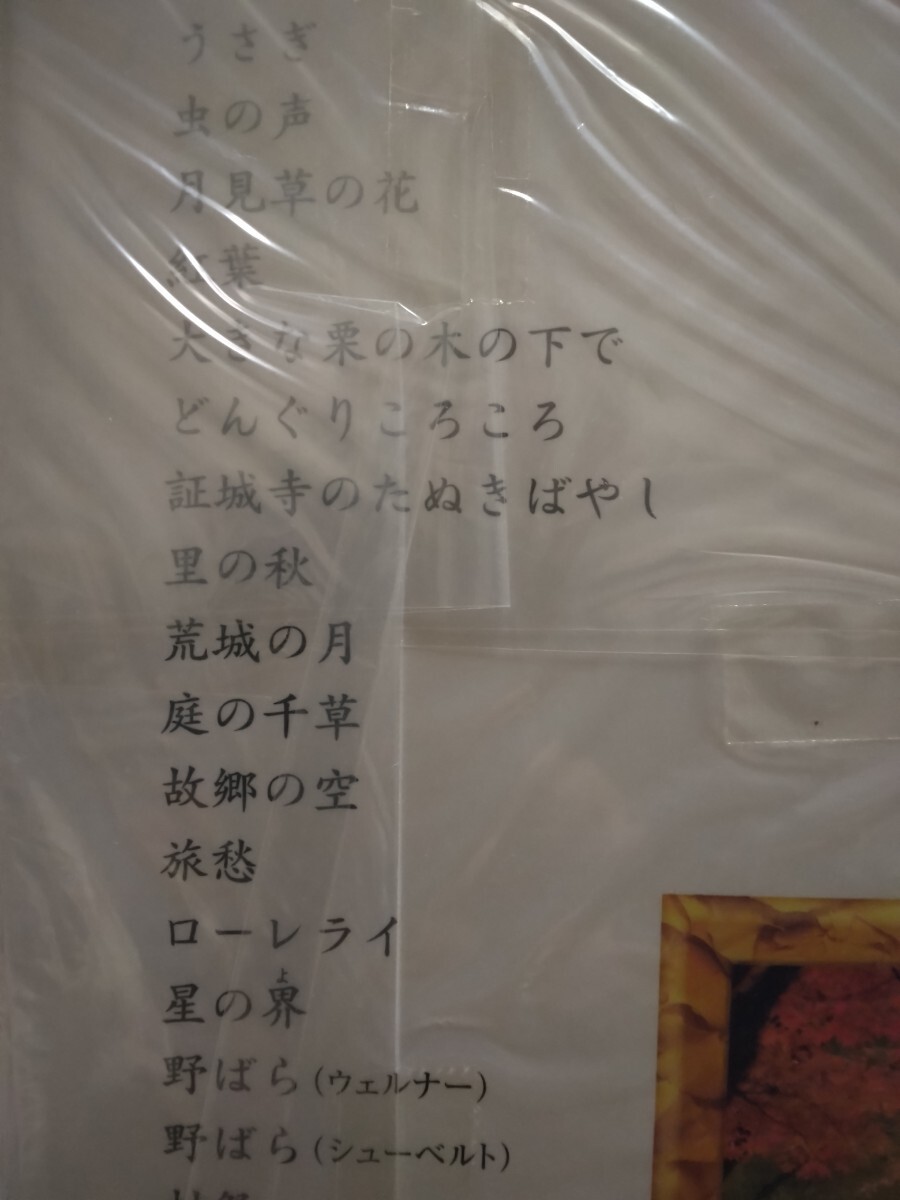 うさぎ
虫の声
月見草の花
紅葉
大きな栗の木の下で
どんぐりころころ
証城寺のたぬきばやし
里の秋
荒城の月
庭の千草
故郷の空
旅愁
ローレライ
星の界
よ
野ばら(ウェルナー)
野ばら(シューベルト)